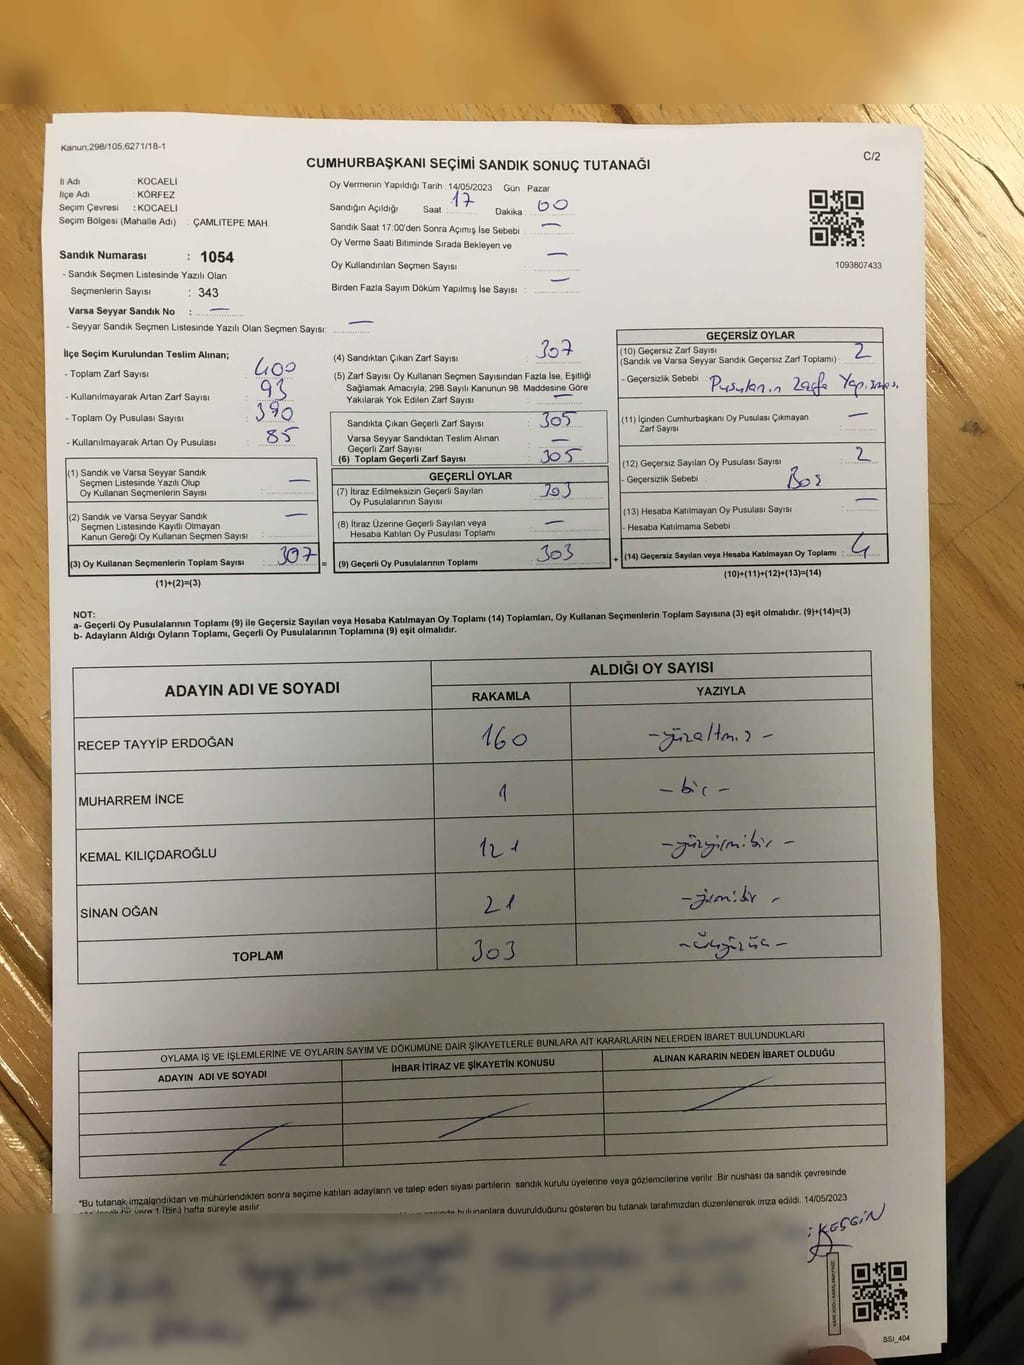 Kanun,298/105,6271/18-1
C/2
CUMHURBAŞKANI SEÇİMİ SANDIK SONUÇ TUTANAĞI
İl Adı : KOCAELİ
İlçe Adı : KÖRFEZ
Seçim Çevresi : KOCAELİ
Seçim Bölgesi (Mahalle Adı) : ÇAMLITEPE MAH.
Sandık Numarası : 1054
- Sandık Seçmen Listesinde Yazılı Olan
Seçmenlerin Sayısı : 343
Varsa Seyyar Sandık No : —
- Seyyar Sandık Seçmen Listesinde Yazılı Olan Seçmen Sayısı: —
Oy Vermenin Yapıldığı Tarih : 14/05/2023 Gün Pazar
Sandığın Açıldığı Saat 17 Dakika 00
Sandık Saat 17:00'den Sonra Açımış İse Sebebi : —
Oy Verme Saati Bitiminde Sırada Bekleyen ve
Oy Kullandırılan Seçmen Sayısı : —
Birden Fazla Sayım Döküm Yapılmış İse Sayısı : —
1093807433
İlçe Seçim Kurulundan Teslim Alınan;
- Toplam Zarf Sayısı : 400
- Kullanılmayarak Artan Zarf Sayısı : 93
- Toplam Oy Pusulası Sayısı : 390
- Kullanılmayarak Artan Oy Pusulası : 85
(1) Sandık ve Varsa Seyyar Sandık
Seçmen Listesinde Yazılı Olup
Oy Kullanan Seçmenlerin Sayısı : —
(2) Sandık ve Varsa Seyyar Sandık
Seçmen Listesinde Kayıtlı Olmayan
Kanun Gereği Oy Kullanan Seçmen Sayısı : —
(3) Oy Kullanan Seçmenlerin Toplam Sayısı : 307 =
(1)+(2)=(3)
(4) Sandıktan Çıkan Zarf Sayısı : 307
(5) Zarf Sayısı Oy Kullanan Seçmen Sayısından Fazla İse, Eşitliği
Sağlamak Amacıyla, 298 Sayılı Kanunun 98. Maddesine Göre
Yakılarak Yok Edilen Zarf Sayısı : —
Sandıkta Çıkan Geçerli Zarf Sayısı : 305
Varsa Seyyar Sandıktan Teslim Alınan
Geçerli Zarf Sayısı : —
(6) Toplam Geçerli Zarf Sayısı : 305
GEÇERLİ OYLAR
(7) İtiraz Edilmeksizin Geçerli Sayılan
Oy Pusulalarının Sayısı : 303
(8) İtiraz Üzerine Geçerli Sayılan veya
Hesaba Katılan Oy Pusulası Toplamı : —
(9) Geçerli Oy Pusulalarının Toplamı : 303 +
GEÇERSİZ OYLAR
(10) Geçersiz Zarf Sayısı
(Sandık ve Varsa Seyyar Sandık Geçersiz Zarf Toplamı) : 2
- Geçersizlik Sebebi : Pusulanın Zarfa
(11) İçinden Cumhurbaşkanı Oy Pusulası Çıkmayan
Zarf Sayısı : —
(12) Geçersiz Sayılan Oy Pusulası Sayısı : 2
- Geçersizlik Sebebi : Boş
(13) Hesaba Katılmayan Oy Pusulası Sayısı : —
- Hesaba Katılmama Sebebi :
(14) Geçersiz Sayılan veya Hesaba Katılmayan Oy Toplamı : 4
(10)+(11)+(12)+(13)=(14)
NOT:
a- Geçerli Oy Pusulalarının Toplamı (9) ile Geçersiz Sayılan veya Hesaba Katılmayan Oy Toplamı (14) Toplamları, Oy Kullanan Seçmenlerin Toplam Sayısına (3) eşit olmalıdır. (9)+(14)=(3)
b- Adayların Aldığı Oyların Toplamı, Geçerli Oy Pusulalarının Toplamına (9) eşit olmalıdır.
ADAYIN ADI VE SOYADI ALDIĞI OY SAYISI
RAKAMLA YAZIYLA
RECEP TAYYİP ERDOĞAN 160 -yüzaltmış-
MUHARREM İNCE 1 -bir-
KEMAL KILIÇDAROĞLU 121 -yüzyirmibir-
SİNAN OĞAN 21 -yirmibir-
TOPLAM 303 -üçyüzüç-
OYLAMA İŞ VE İŞLEMLERİNE VE OYLARIN SAYIM VE DÖKÜMÜNE DAİR ŞİKAYETLERLE BUNLARA AİT KARARLARIN NELERDEN İBARET BULUNDUKLARI
ADAYIN ADI VE SOYADI İHBAR İTİRAZ VE ŞİKAYETİN KONUSU ALINAN KARARIN NEDEN İBARET OLDUĞU
*Bu tutanak imzalandıktan ve mühürlendikten sonra seçime katılan adayların ve talep eden siyasi partilerin sandık kurulu üyelerine veya gözlemcilerine verilir. Bir nüshası da sandık çevresinde
1 (bir) hafta süreyle asılır. bulunanlara duyurulduğunu gösteren bu tutanak tarafımızdan düzenlenerek imza edildi. 14/05/2023
KESGİN
SSI_404